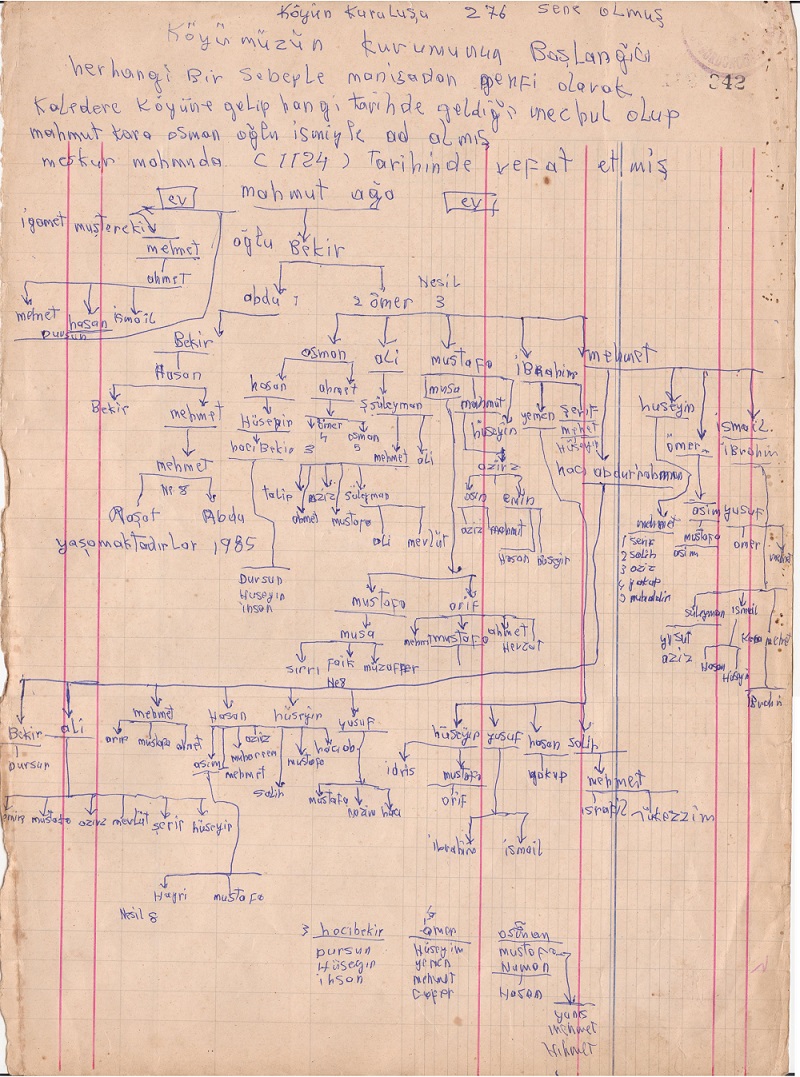 Köyün Kuruluşu 276 sene olmuş
Köyümüzün kurumunun Başlangıcı
242
herhangi Bir sebeple manisadan gelerek
Kaledere köyüne gelip hangi tarihde geldiği mechul olup
mahmut kara osman oğlu ismiyle ad almış
meskur mahmuda (1124) Tarihinde vefat etmiş
ev mahmut ağa ev
mustereki
mehmet
oğlu Bekir
ahmet
Nesil
abdu 1 2 ömer 3
mehmet hasan ismail
Dursun
Bekir osman ali mustafa iBrahim mehmet
Hasan hasan ahmet musa mahmut hüseyin
Bekir mehmet Hüseyin ömer süleyman hüseyin yemen şerif ömer ismail
4 osman mehmet ibrahim
5 Hüseyin
mehmet haci Bekir 3 mehmet ali haci abdurrahman
Ne 8 talip aziz süleyman aziz
Raşat Abdu ahmet mustafa asim emin asim yusuf
yaşamaktadırlar 1985 ali mevlüt aziz mahmut mehmet mustafa ömer
Hasan hüseyin asim
1 şerif
2 salih
3 aziz
4 yakup
5
Dursun
Hüseyin
ihsan
mustafa arif
süleyman ismail
musa mehmet mustafa ahmet
Mevlut
yusuf Kara mehmet
aziz Hasan Hüseyin
sırrı Faik muzaffer
Ne 8
Bekir ali mehmet Hasan hüseyin yusuf hüseyin yusuf hasan salih
Dursun arif mustafa ahmet asim aziz muharrem mehmet mustafa salih
idris mustafa yakup mehmet
arif israfil
mustafa nazim haci
mustafa aziz mevlüt şerif hüseyin
ibrahim ismail
Hayri mustafa
Nesil 8
3 hacibekir ömer osman
Dursun Hüseyin mustafa
Hüseyin yemen Numan
ihsan mehmet Hasan
Cafer
yunis
mehmet
Hikmet